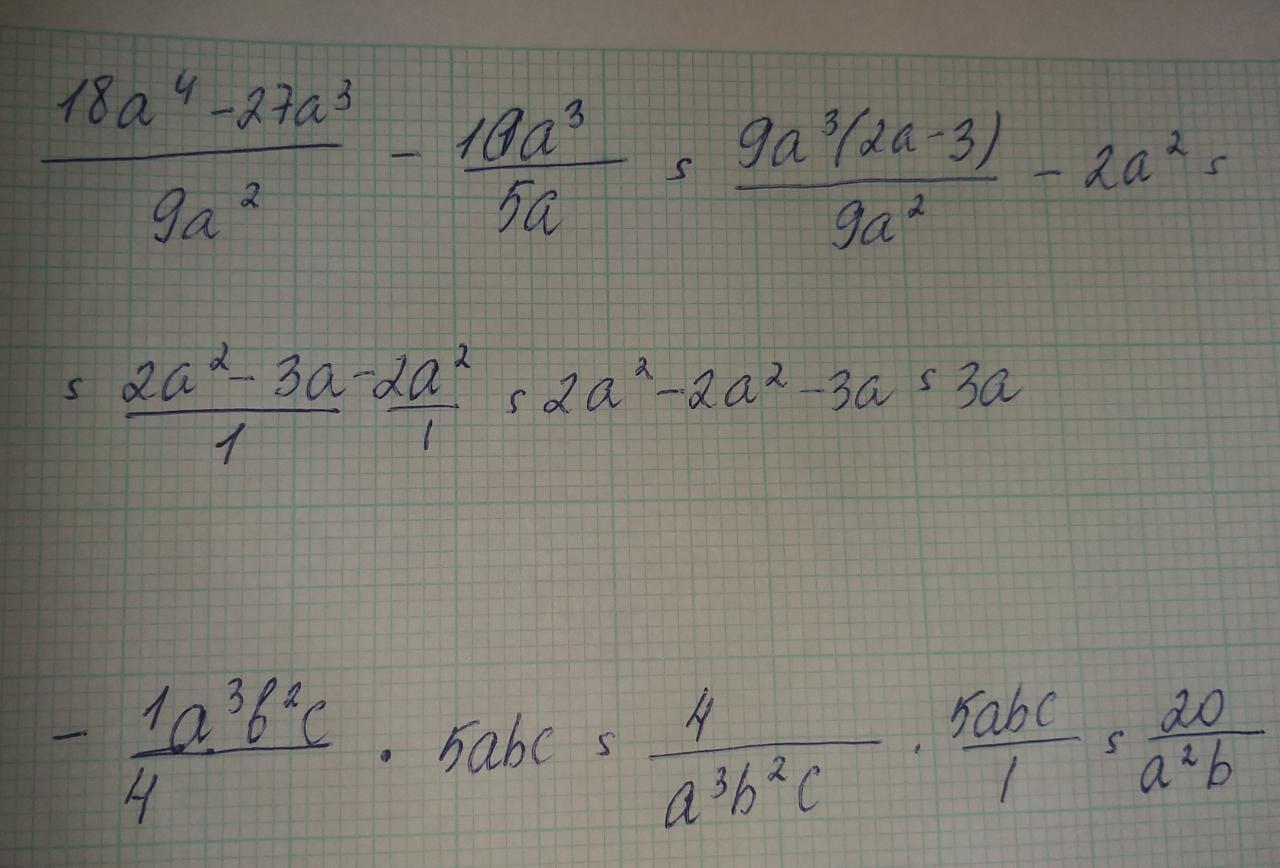 18a⁴ - 27a³ / 9a² - 10a³ / 5a = 9a³(2a - 3) / 9a² - 2a² =
= 2a² - 3a / 1 - 2a² / 1 = 2a² - 2a² - 3a = 3a
- 1a³b²c / 4 · 5abc = 4 / a³b²c · 5abc / 1 = 20 / a²b